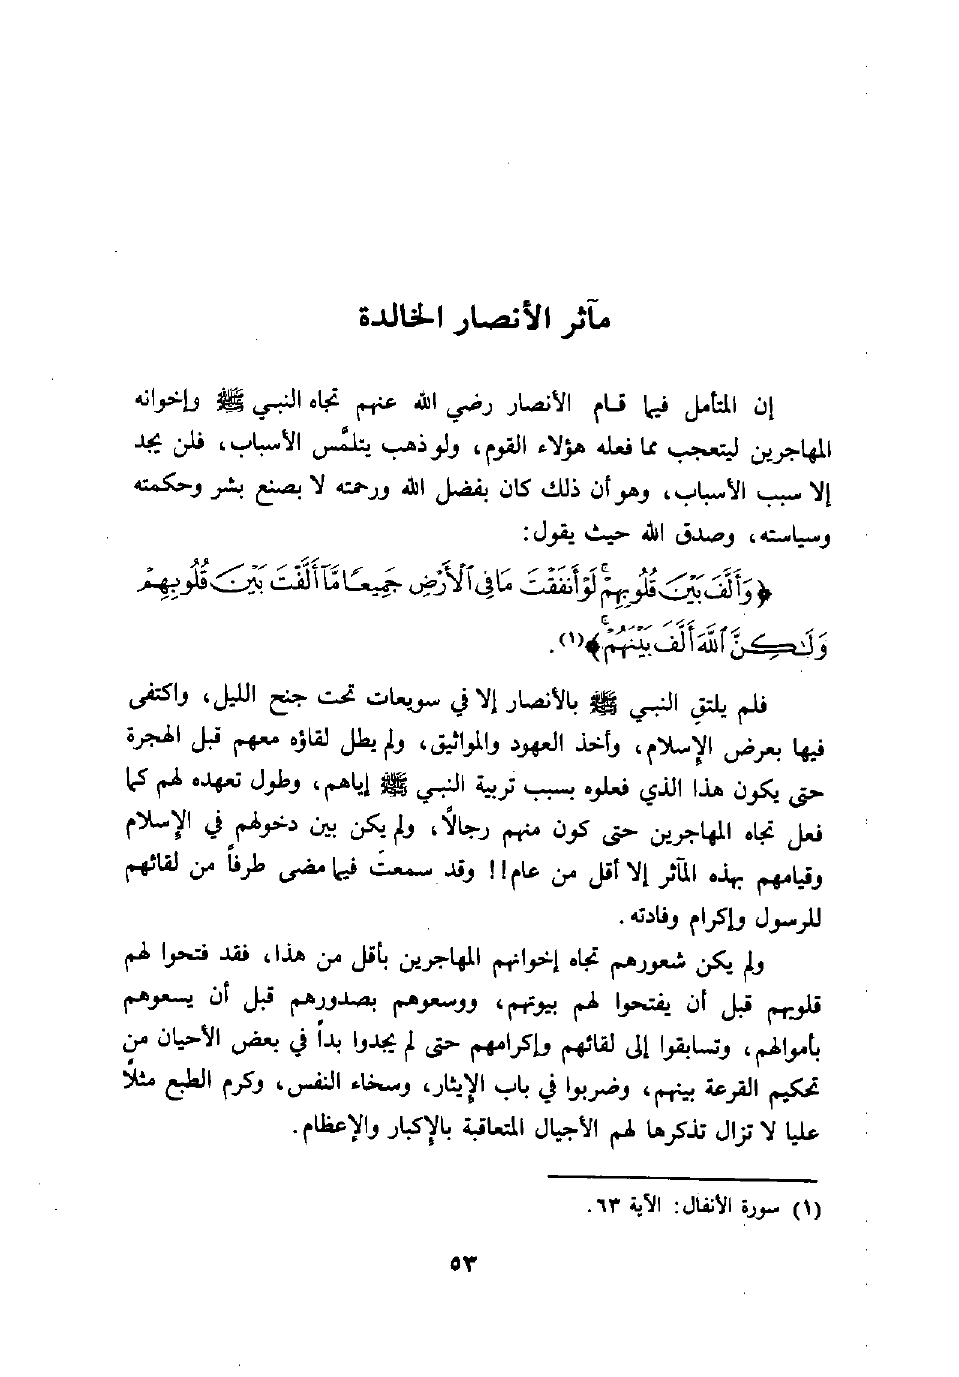 مآثر الأنصار الخالدة
إن المتأمل فيما قام الأنصار رضي الله عنهم تجاه النبي ﷺ وإخوانه
المهاجرين ليتعجب مما فعله هؤلاء القوم، ولو ذهب يتلمَّس الأسباب، فلن يجد
إلا سبب الأسباب، وهو أن ذلك كان بفضل الله ورحمته لا بصنع بشر وحكمته
وسياسته، وصدق الله حيث يقول:
﴿وَأَلَّفَ بَيْنَ قُلُوبِهِمْ ۚ لَوْ أَنفَقْتَ مَا فِي ٱلْأَرْضِ جَمِيعًا مَّآ أَلَّفْتَ بَيْنَ قُلُوبِهِمْ
وَلَٰكِنَّ ٱللَّهَ أَلَّفَ بَيْنَهُمْ ۚ﴾(١).
فلم يلتقِ النبي ﷺ بالأنصار إلا في سويعات تحت جنح الليل، واكتفى
فيها بعرض الإسلام، وأخذ العهود والمواثيق، ولم يطل لقاؤه معهم قبل الهجرة
حتى يكون هذا الذي فعلوه بسبب تربية النبي ﷺ إياهم، وطول تعهده لهم كما
فعل تجاه المهاجرين حتى كون منهم رجالاً، ولم يكن بين دخولهم في الإسلام
وقيامهم بهذه المآثر إلا أقل من عام!! وقد سمعتَ فيما مضى طرفاً من لقائهم
للرسول وإكرام وفادته.
ولم يكن شعورهم تجاه إخوانهم المهاجرين بأقل من هذا، فقد فتحوا لهم
قلوبهم قبل أن يفتحوا لهم بيوتهم، ووسعوهم بصدورهم قبل أن يسعوهم
بأموالهم، وتسابقوا إلى لقائهم وإكرامهم حتى لم يجدوا بداً في بعض الأحيان من
تحكيم القرعة بينهم، وضربوا في باب الإيثار، وسخاء النفس، وكرم الطبع مثلاً
عليا لا تزال تذكرها لهم الأجيال المتعاقبة بالإكبار والإعظام.
(١) سورة الأنفال: الآية ٦٣.
٥٣